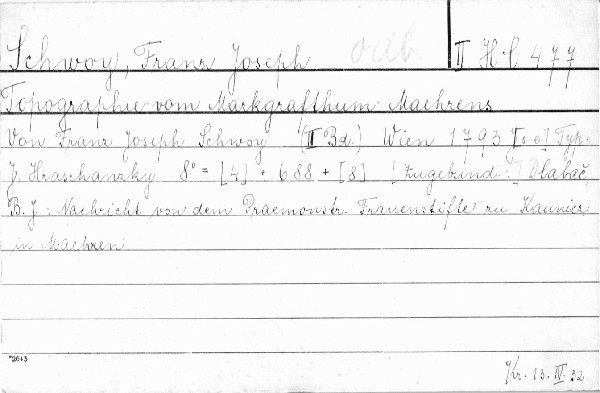 Schwoy, Franz Joseph odb. II H c 477
Topographie vom Markgrafthum Maehrens
Von Franz Joseph Schwoy (II Bd.) Wien 1793 [s e] Typ:
J. Hraschanzky 8° = [4] + 688 + [8] [Zugebund.:] Dlabač,
B. J: Nachricht von dem Praemonstr. Frauenstifte zu Kaunicz
in Maehren
*2643
Kr. 13. IV. 32